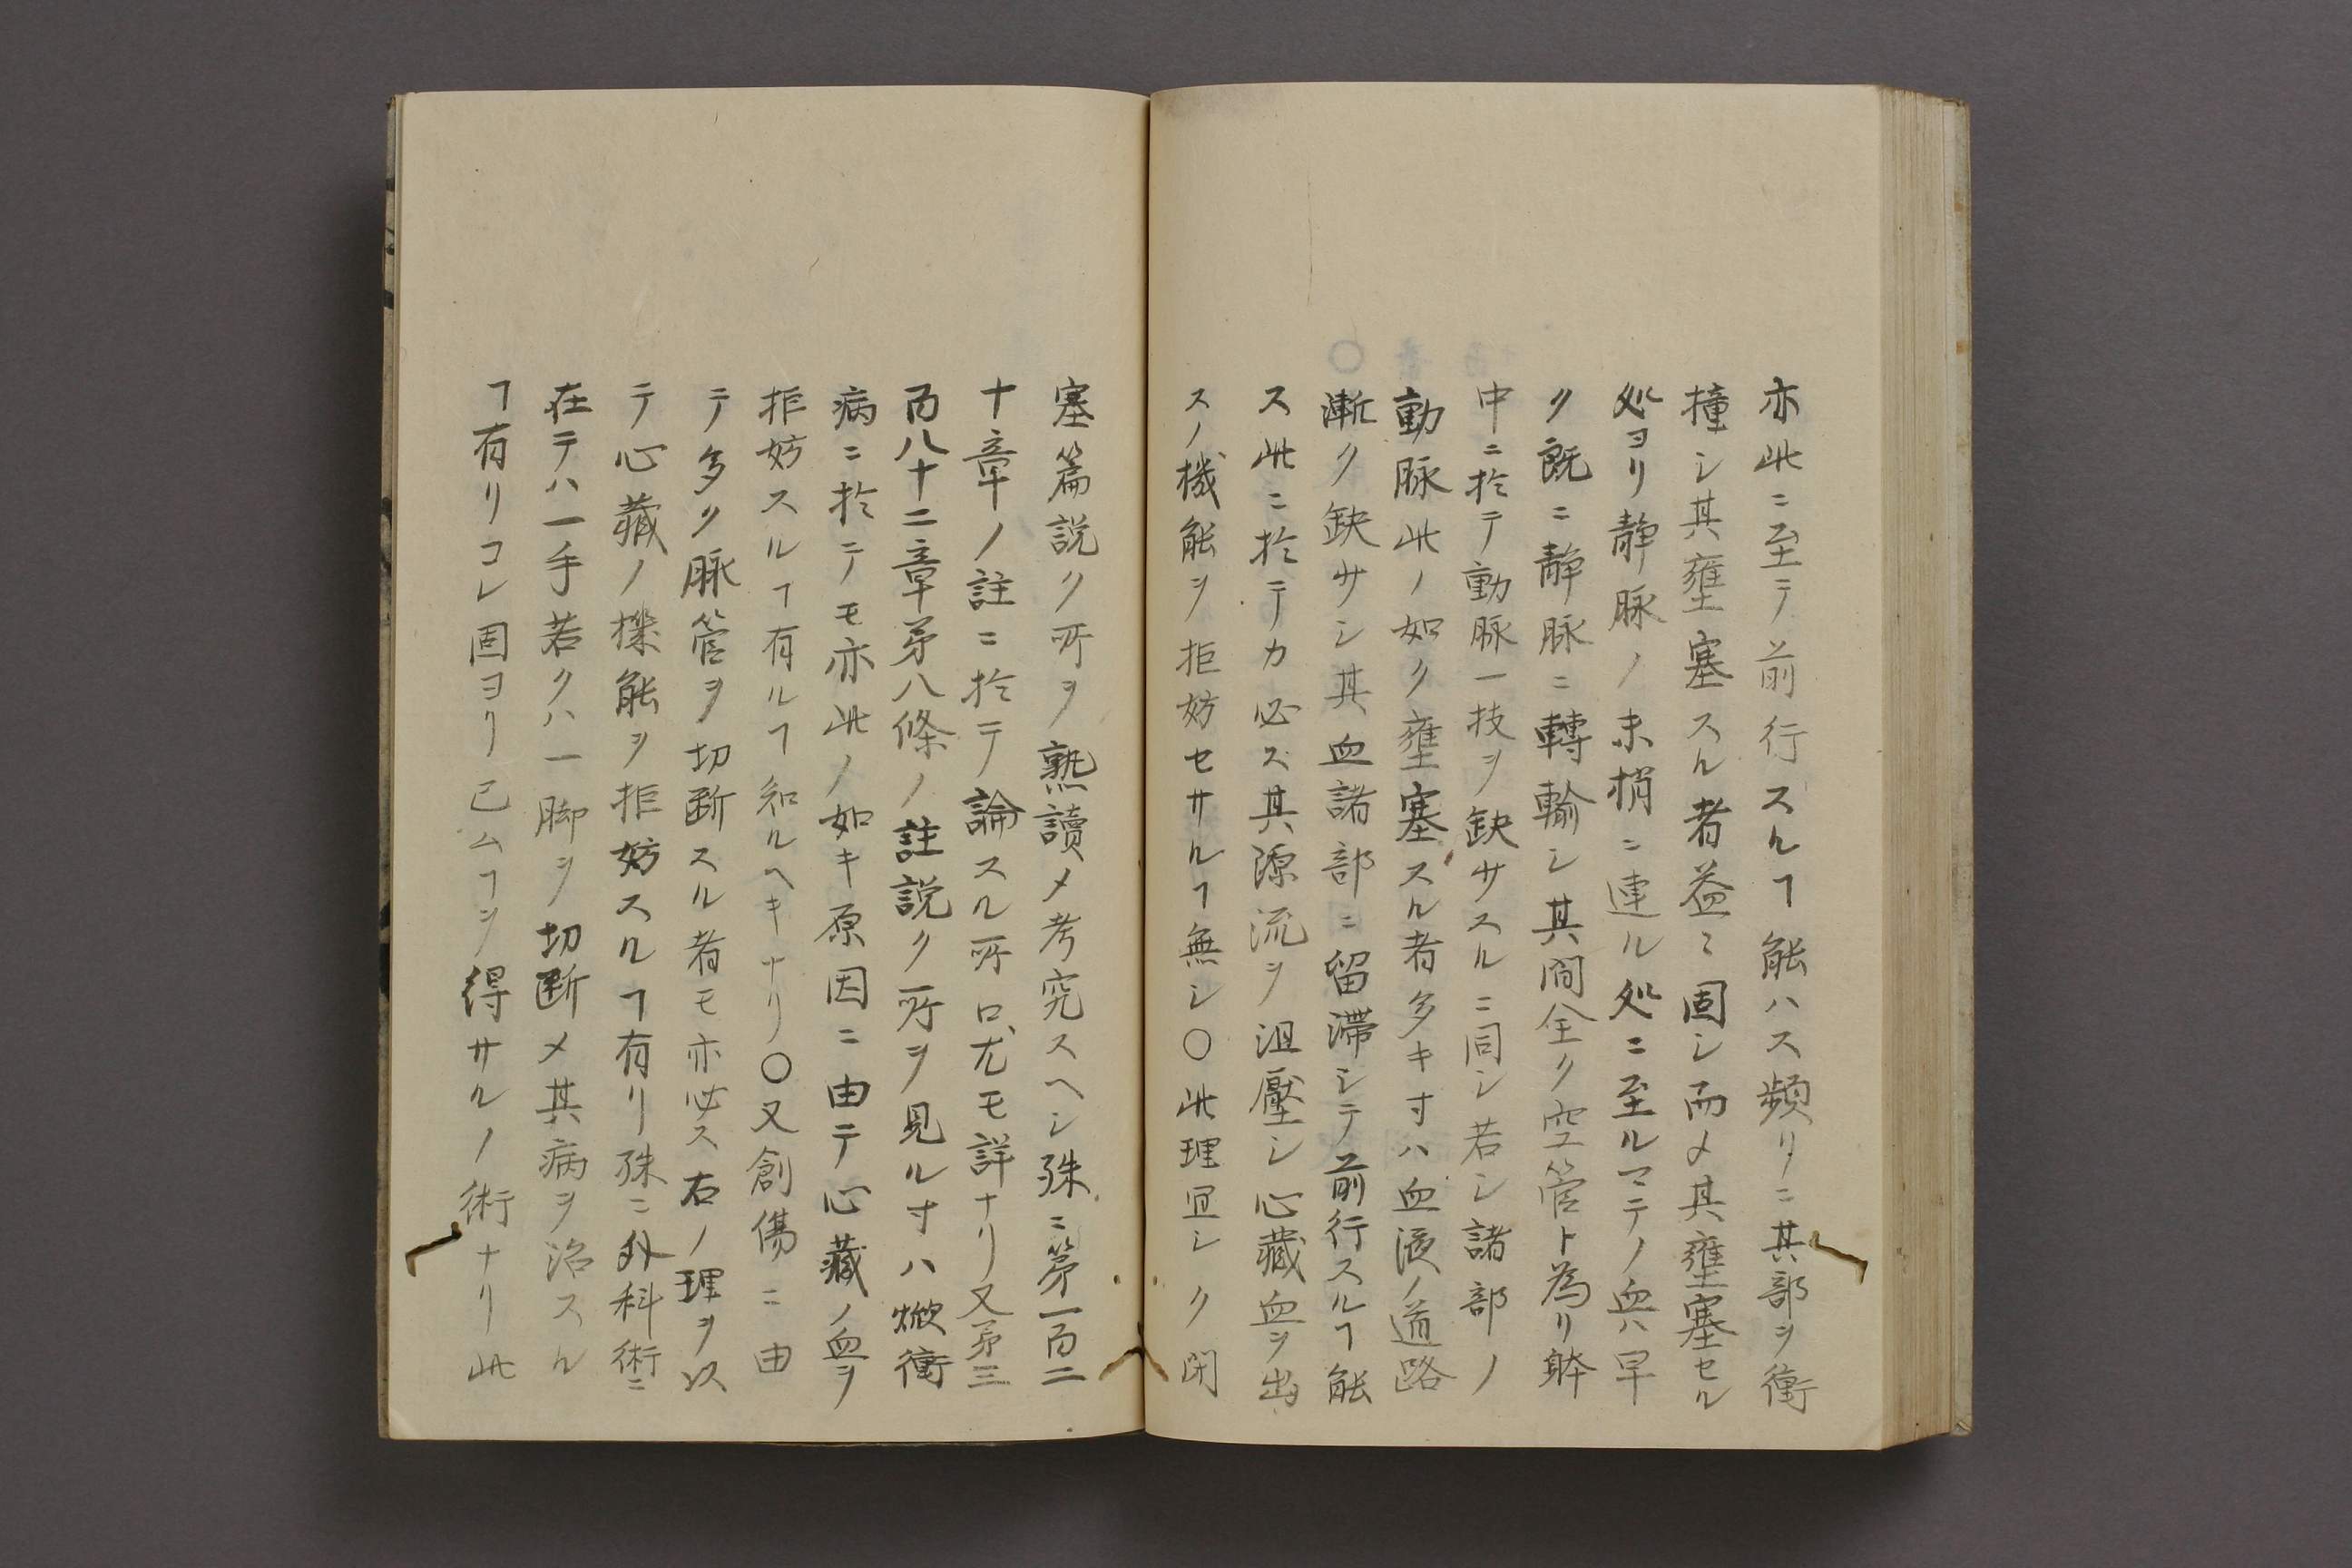 亦此ニ至テ前行スルヿ能ハス頻リニ其部ヲ衝
撞シ其壅塞スル者益〻固シ而〆其壅塞セル
処ヨリ静脉ノ末梢ニ連ル処ニ至ルマテノ血ハ早
ク既ニ静脉ニ轉輸シ其間全ク空管ト為リ躰
中ニ於テ動脉一技ヲ缺サスルニ同シ若シ諸部ノ
動脉此ノ如ク壅塞スル者多キ寸ハ血液ノ道路
漸ク缺サシ其血諸部ニ留滞シテ前行スルヿ能
ス此ニ於テカ必ズ其源流ヲ沮壓シ心藏血ヲ出
スノ機能ヲ拒妨セサルヿ無シ〇此理冝シク閉
塞篇説ク所ヲ熟讀〆考究スヘシ殊ニ第一百二
十章ノ註ニ於テ論スル所ロ尤モ詳ナリ又第三
百八十二章第八條ノ註説ク所ヲ見ル寸ハ焮衝
病ニ於テモ亦此ノ如キ原因ニ由テ心藏ノ血ヲ
拒妨スルヿ有ルヿ知ルヘキナリ〇又創傷ニ由
テ多ク脉管ヲ切断スル者モ亦必ス右ノ理ヲ以
テ心藏ノ機能ヲ拒妨スルヿ有リ殊ニ外科術ニ
在テハ一手若クハ一脚ヲ切断〆其病ヲ治スル
ヿ有リコレ固ヨリ已ムヿヲ得サルノ術ナリ此